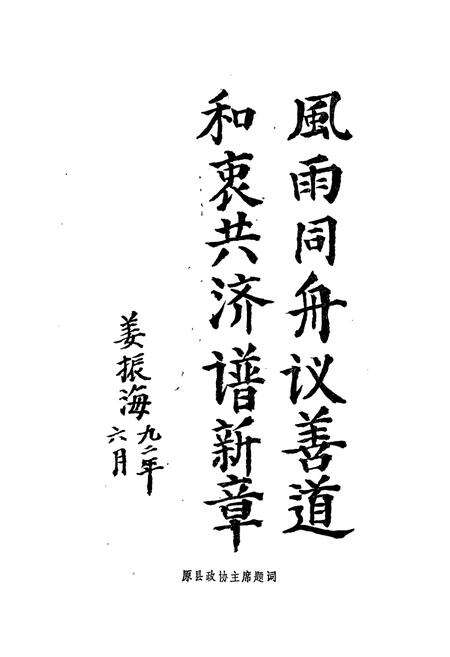 風雨同舟议善道
和衷共济谱新章
姜振海
九二年
六月
原县政协主席题词